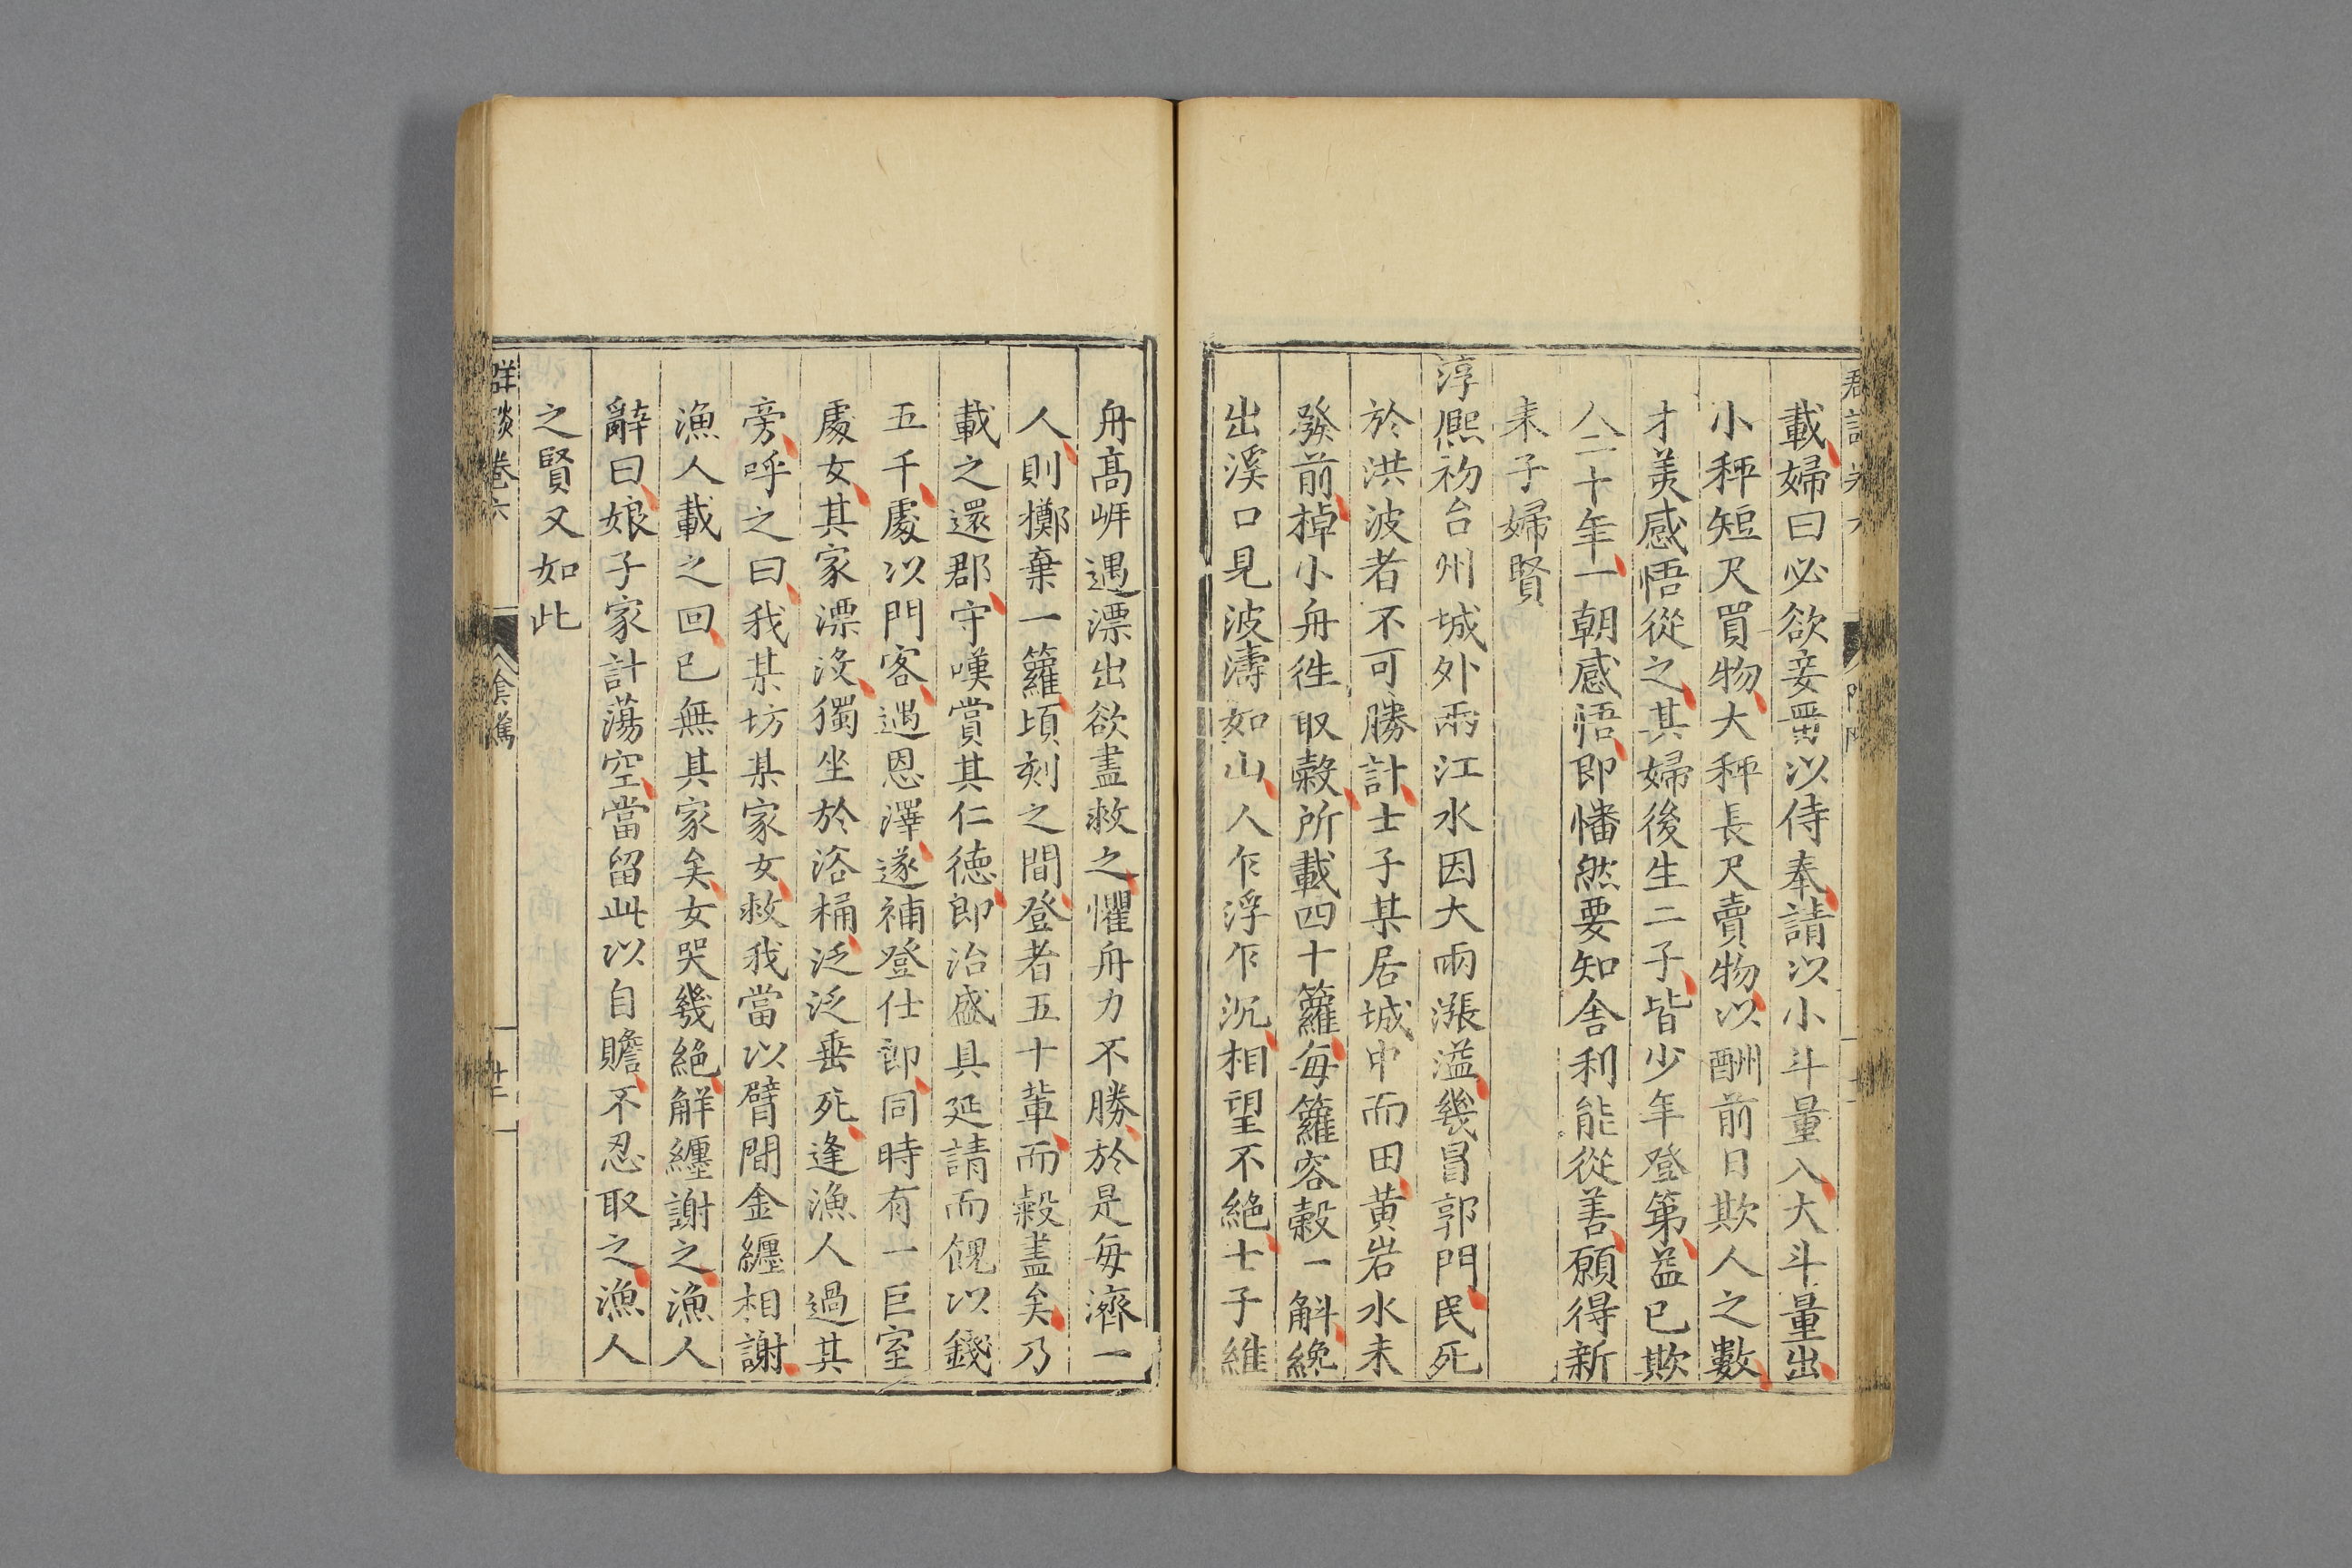 載婦曰必欲妾畱以侍奉請以小斗量入大斗量出
小秤短尺買物大秤長尺賣物以酬前日欺人之數
才美感悟從之其婦後生二子皆少年登第益已欺
人二十年一朝感悟即幡然要知舍利能從善願得新
耒子婦賢
淳熈初台州城外兩江水因大雨漲溢幾冒郭門民死
於洪波者不可勝計士子某居城中而田黄岩水未
發前棹小舟徃取榖所載四十籮每籮容榖一斛纔
出溪口見波濤如山人乍浮乍沉相望不絶士子維
舟髙岍遇漂出欲盡救之懼舟力不勝於是每濟一
人則擲棄一籮頃刻之間登者五十軰而榖盡矣乃
載之還郡守嘆賞其仁德即治盛具延請而餽以錢
五千處以門客遇恩澤遂補登仕郎同時有一巨室
處女其家漂沒獨坐於浴桶泛泛垂死逢漁人過其
旁呼之曰我某坊某家女救我當以臂間金纏相謝
漁人載之回已無其家矣女哭幾絶解纏謝之漁人
辭曰娘子家計蕩空當留此以自贍不忍取之漁人
之賢又如此
群談卷六
陰隲
廿一